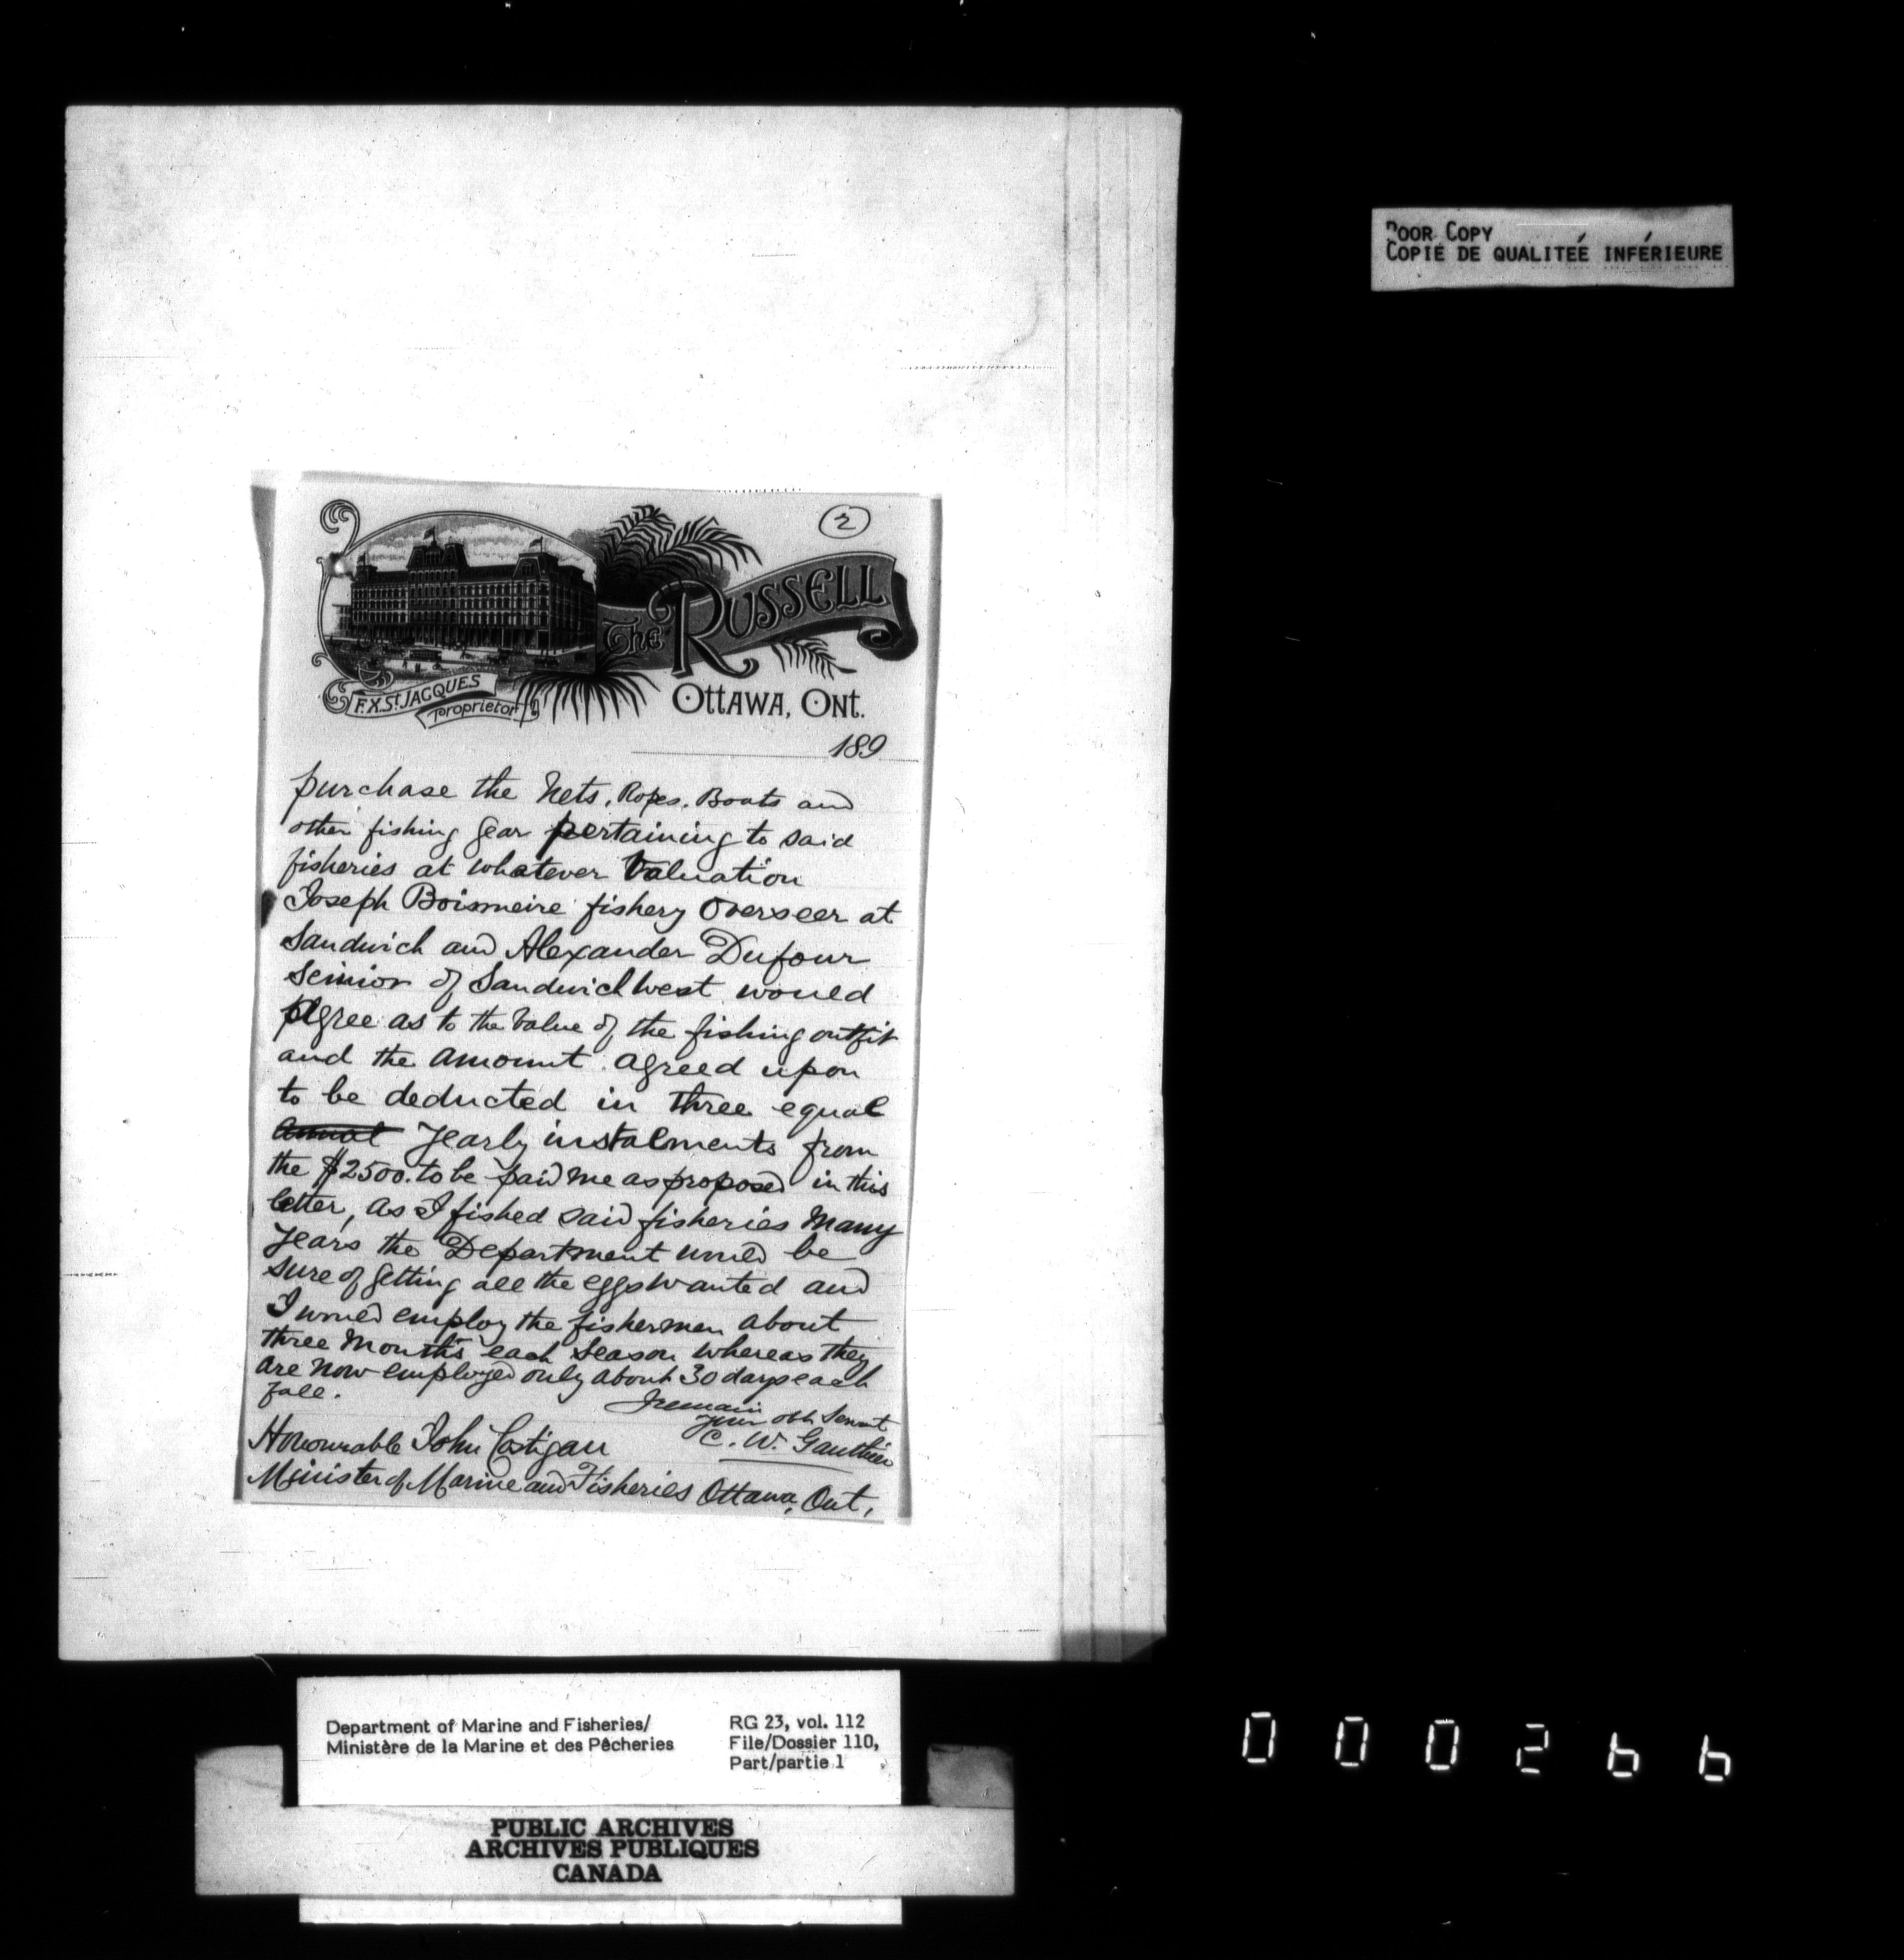 POOR COPY
COPIE DE QUALITEÉ INFÉRIEURE
2
The RUSSELL
F.X. St. JACQUES
Proprietor
OTTAWA, ONT.
189
purchase the Nets, Ropes, Boats and
other fishing gear pertaining to said
fisheries at whatever Valuation
Joseph Boismeire fishery Overseer at
Sandwich and Alexander Dufour
Seinior of Sandwich West would
Agree as to the Value of the fishing outfit
and the amount agreed upon
to be deducted in three equal
Annual Yearly instalments from
the $2500. to be paid me as proposed in this
letter, as I fished said fisheries Many
Years the Department would be
sure of getting all the eggs wanted and
I would employ the fishermen about
three Months each Season whereas they
are now employed only about 30 days each
fall.
I remain
Your obt Servant
C. W. Gauthier
Honourable John Costigan
Minister of Marine and Fisheries Ottawa, Ont,
Department of Marine and Fisheries/
Ministère de la Marine et des Pêcheries
RG 23, vol. 112
File/Dossier 110,
Part/partie 1
PUBLIC ARCHIVES
ARCHIVES PUBLIQUES
CANADA
000266